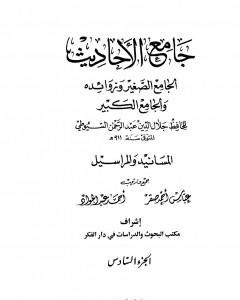 جامع الأحاديث
الجامع الصغير وزوائده
والجامع الكبير
للحافظ جلال الدين عبد الرحمن السيوطي
المتوفى سنة ٩١١ هـ
المسانيد والمراسيل
جمع وترتيب
عباس أحمد صقر أحمد عبد الجواد
إشراف
مكتب البحوث والدراسات في دار الفكر
الجزء السادس